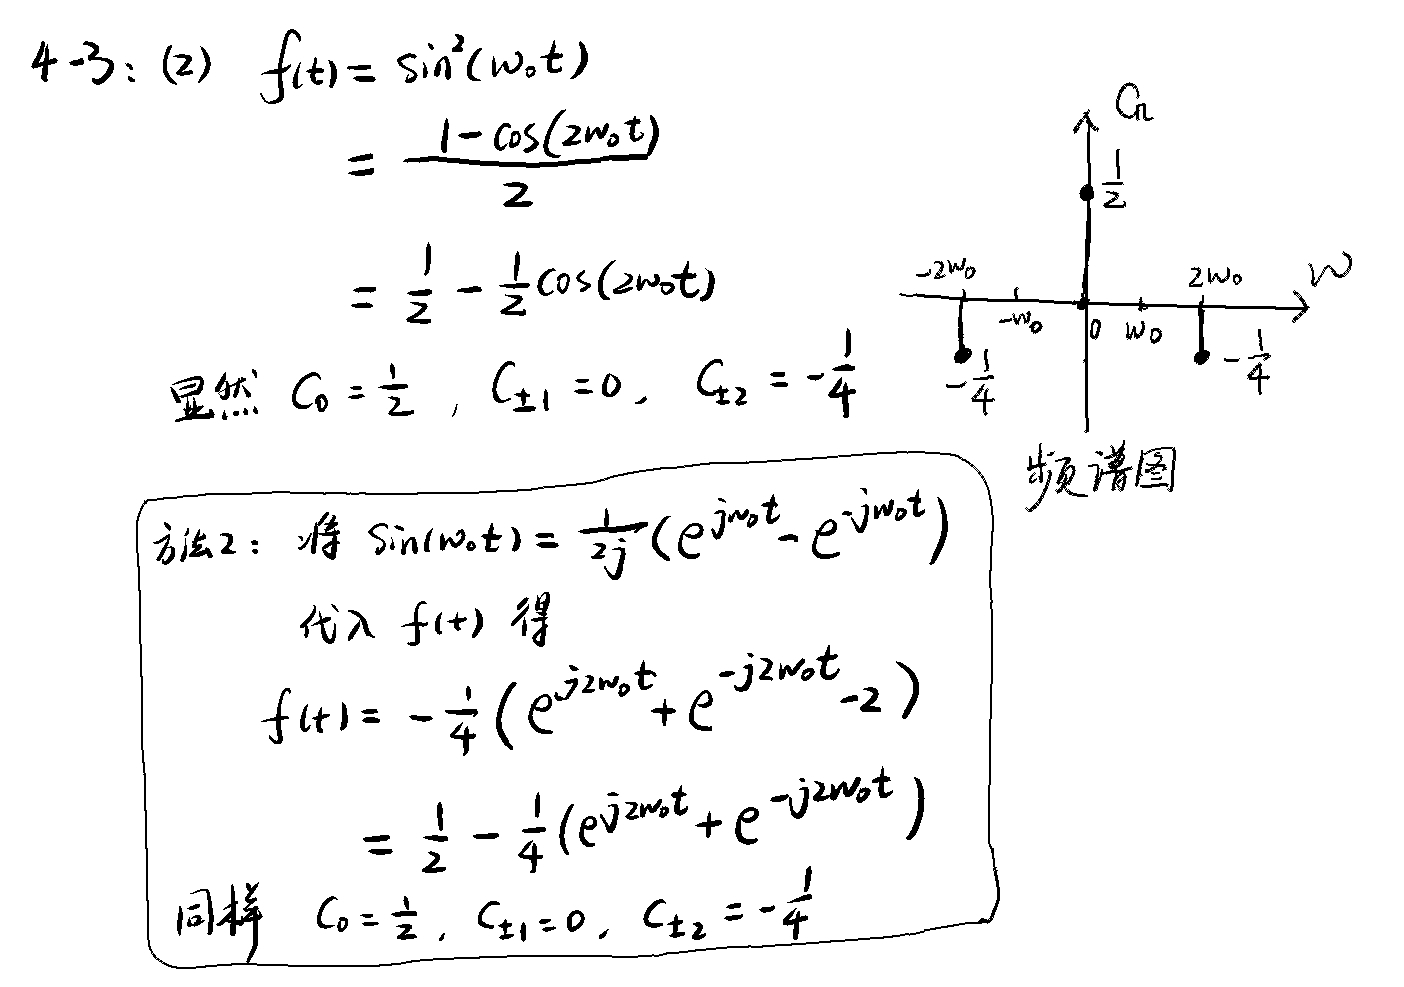 4-3: (2) f(t) = sin²(w₀t)
= (1-cos(2w₀t))/2
= 1/2 - 1/2 cos(2w₀t)
显然 C₀ = 1/2 , C±₁ = 0 , C±₂ = -1/4
Cn
1/2
-2w₀ 2w₀ w
-w₀ 0 w₀
-1/4 -1/4
频谱图
方法2: 将 Sin(w₀t) = 1/2j (e^jw₀t - e^-jw₀t)
代入 f(t) 得
f(t) = -1/4 (e^j2w₀t + e^-j2w₀t -2)
= 1/2 - 1/4 (e^j2w₀t + e^-j2w₀t)
同样 C₀ = 1/2 , C±₁ = 0 , C±₂ = -1/4